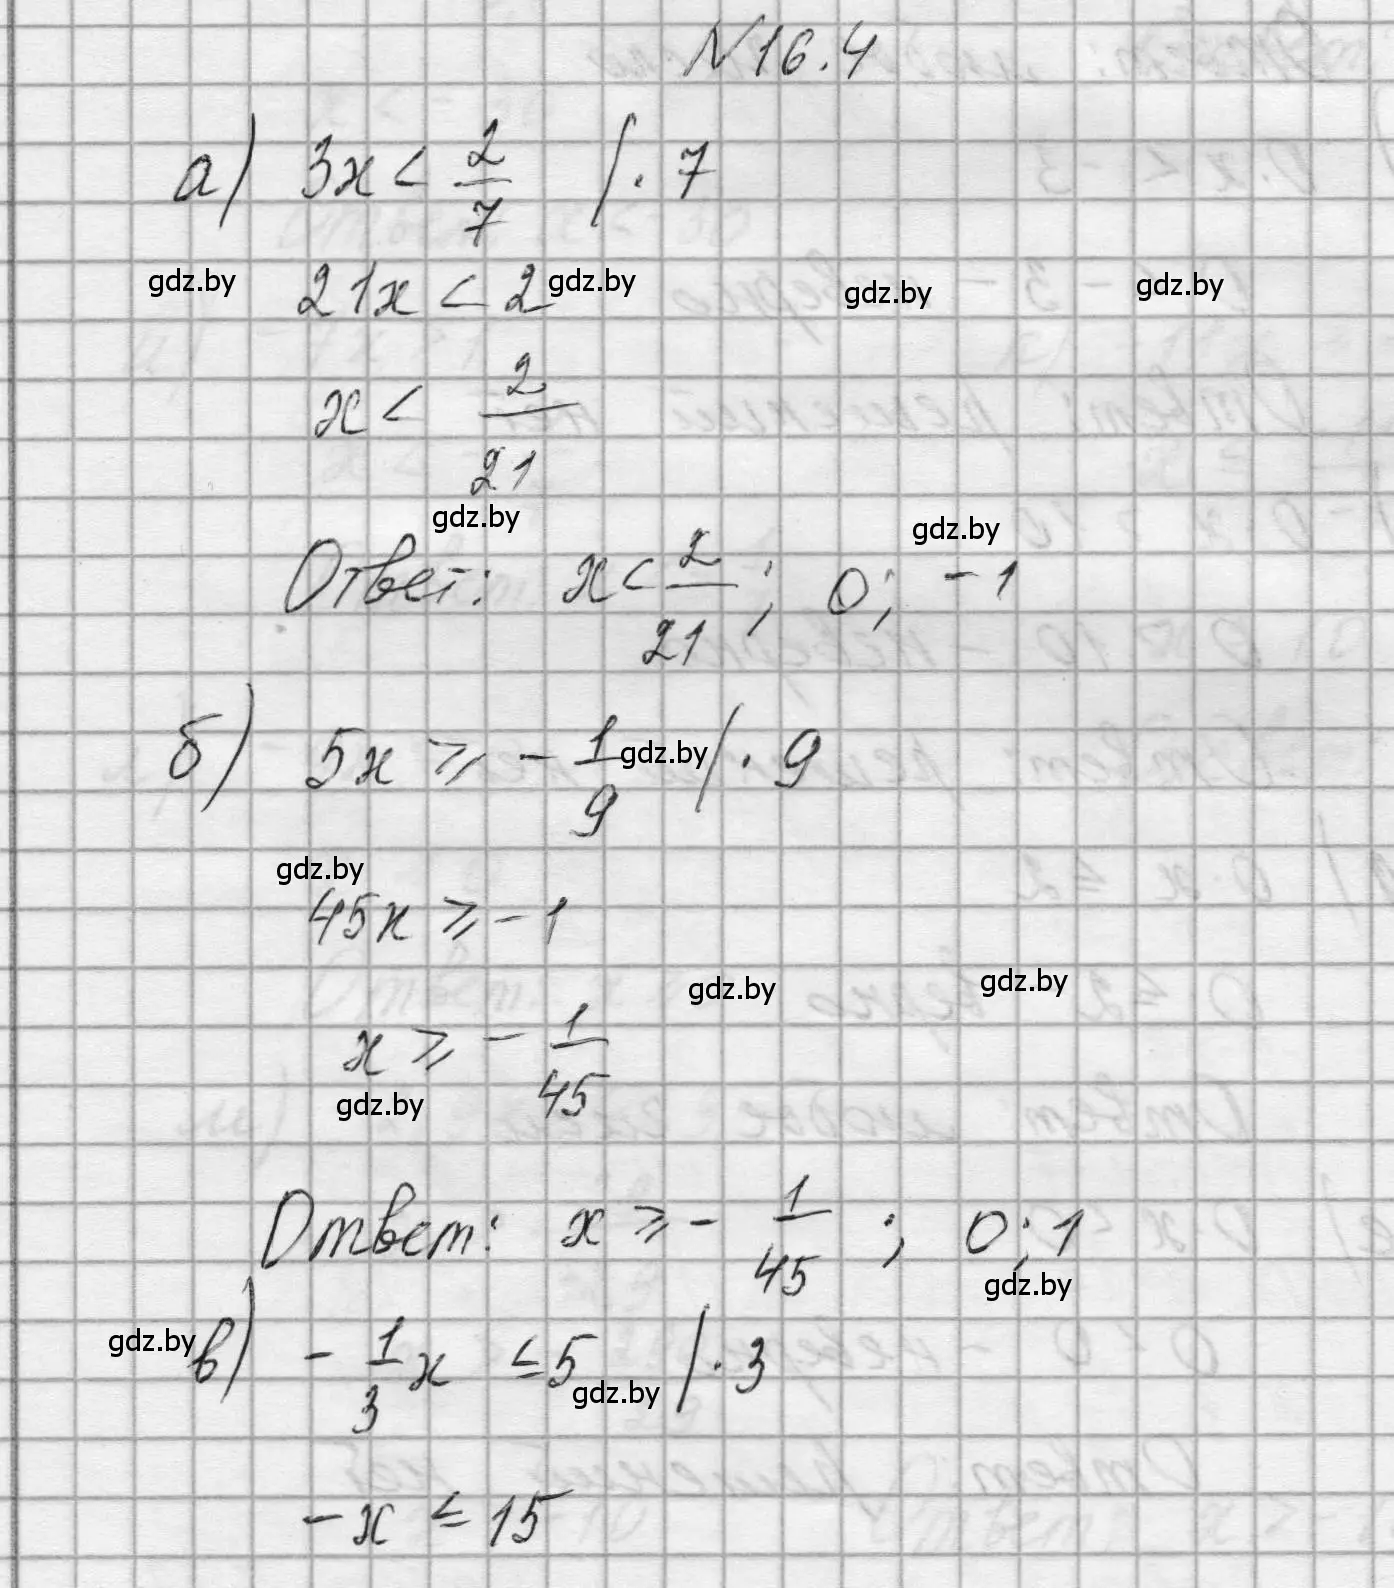 N 16.4
а) 3x < 2/7 | · 7
gdz.by 21x < 2 gdz.by gdz.by gdz.by
x < 2/21
gdz.by gdz.by
Ответ: x < 2/21; 0; -1
б) 5x ⩾ - 1/9 gdz.by | · 9
gdz.by
45x ⩾ -1
gdz.by gdz.by
x ⩾ - 1/45
gdz.by
Ответ: x ⩾ - 1/45; 0; 1
gdz.by
gdz.by в) - 1/3 x ≤ 5 | · 3
gdz.by
-x ≤ 15